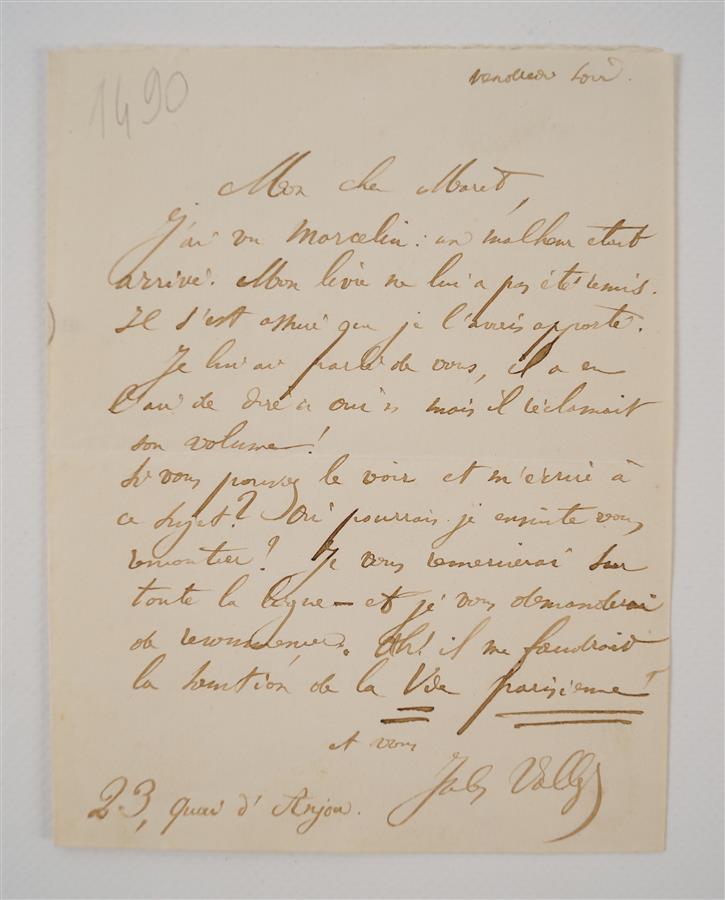 1490
vendredi soir.
Mon cher Maret,
J'ai vu Marcelin : un malheur était
arrivé. Mon livre ne lui a pas été remis.
Il s'est assuré que je l'avais apporté.
Je lui ai parlé de vous, il a eu
l'air de dire « oui » mais il réclamait
son volume !
Si vous pouviez le voir et m'écrire à
ce sujet ? Où pourrais-je ensuite vous
rencontrer ? Je vous remercierai sur
toute la ligne — et je vous demanderai
de recommencer. Ah ! il me faudrait
la sanction de la Vie parisienne !
et vous
Jules Vallès
23, quai d'Anjou.